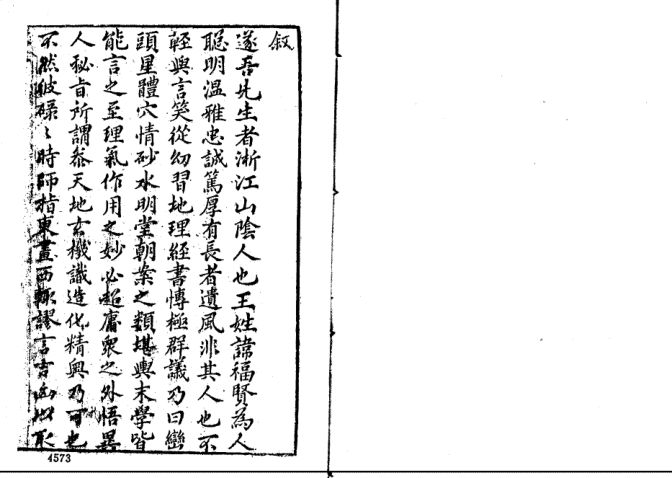 叙
遂吾先生者浙江山陰人也王姓諱福賢為人
聰明溫雅忠誠篤厚有長者遺風非其人也不
輕與言笑從幼習地理經書博極群議乃曰巒
頭星體穴情砂水明堂朝案之類堪輿末學皆
能言之至理氣作用之妙必超庸眾之外悟異
人秘旨所謂叅天地玄機識造化精奧乃可也
不然彼碌〻時師指東畫西輒謬言吉凶以取
4573